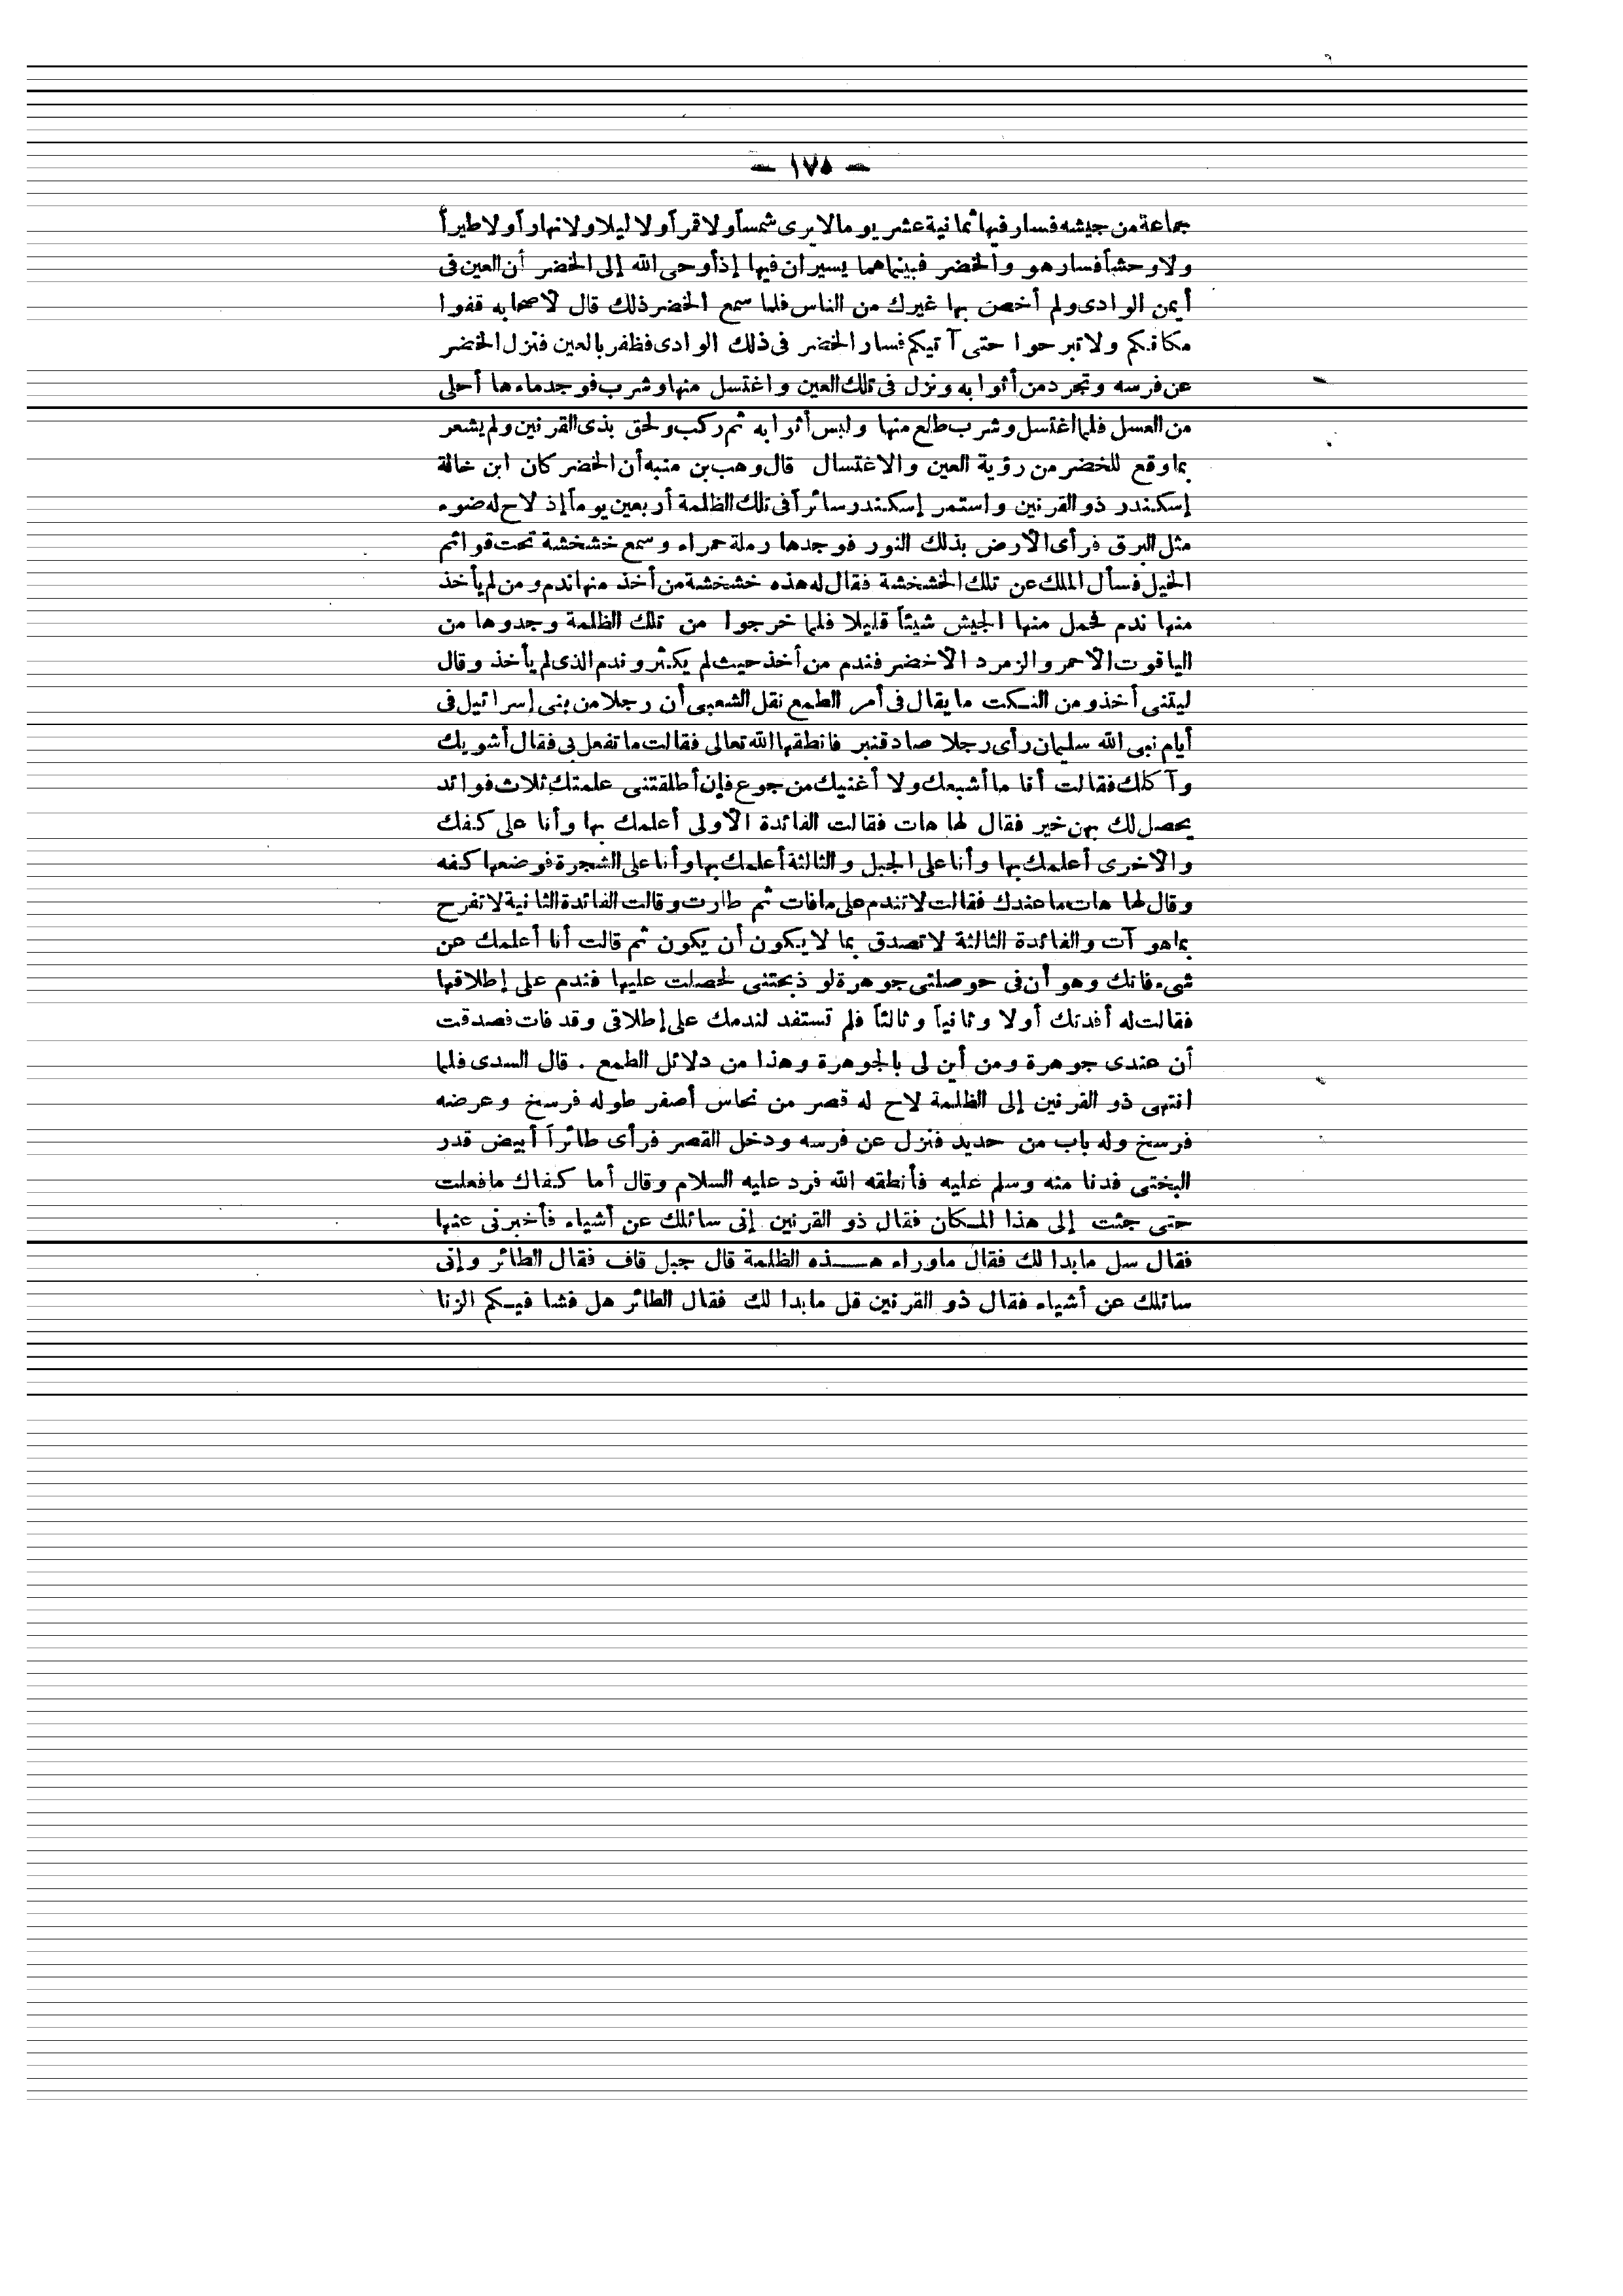 — ١٧٥ —
جماعة من جيشه فسار فيها ثمانية عشر يوما لا يرى شمساً ولا قمراً ولا ليلا ولا نهاراً ولا طيراً
ولا وحشاً فسار هو والخضر فبينما هما يسيران فيها إذ أوحى الله إلى الخضر أن العين فى
أيمن الوادى ولم أخص بها غيرك من الناس فلما سمع الخضر ذلك قال لأصحابه قفوا
مكانكم ولا تبرحوا حتى آتيكم فسار الخضر فى ذلك الوادى فظفر بالعين فنزل الخضر
عن فرسه وتجرد من أثوابه ونزل فى تلك العين واغتسل منها وشرب فوجد ماءها أحلى
من العسل فلما اغتسل وشرب طلع منها ولبس أثوابه ثم ركب ولحق بذى القرنين ولم يشعر
بما وقع للخضر من رؤية العين والاغتسال قال وهب بن منبه أن الخضر كان ابن خالة
إسكندر ذو القرنين واستمر إسكندر سائراً فى تلك الظلمة أربعين يوماً إذ لاح له ضوء
مثل البرق فرأى الأرض بذلك النور فوجدها رملة حمراء وسمع خشخشة تحت قوائم
الخيل فسأل الملك عن تلك الخشخشة فقال له هذه خشخشة من أخذ منها ندم ومن لم يأخذ
منها ندم فحمل منها الجيش شيئاً قليلا فلما خرجوا من تلك الظلمة وجدوها من
الياقوت الأحمر والزمرد الأخضر فندم من أخذ حيث لم يكثر وندم الذى لم يأخذ وقال
ليتنى أخذ ومن النكت ما يقال فى أمر الطمع نقل الشعبى أن رجلا من بنى إسرائيل فى
أيام نبى الله سليمان رأى رجلا صاد قنبر فانطقها الله تعالى فقالت ما تفعل بى فقال أشويك
وآكلك فقالت أنا ما أشبعك ولا أغنيك من جوع فإن أطلقتنى علمتك ثلاث فوائد
يحصل لك بهن خير فقال لها هات فقالت الفائدة الأولى أعلمك بها وأنا على كفك
والأخرى أعلمك بها وأنا على الجبل والثالثة أعلمك بها وأنا على الشجرة فوضعها كفه
وقال لها هات ما عندك فقالت لا تندم على مافات ثم طارت وقالت الفائدة الثانية لا تفرح
بما هو آت والفائدة الثالثة لا تصدق بما لا يكون أن يكون ثم قالت أنا أعلمك عن
شىء فاتك وهو أن فى حوصلتى جوهرة لو ذبحتنى لحصلت عليها فندم على إطلاقها
فقالت له أفدتك أولا وثانياً وثالثاً فلم تستفد لندمك على إطلاقى وقد فات فصدقت
أن عندى جوهرة ومن أين لى بالجوهرة وهذا من دلائل الطمع . قال السدى فلما
انتهى ذو القرنين إلى الظلمة لاح له قصر من نحاس أصفر طوله فرسخ وعرضه
فرسخ وله باب من حديد فنزل عن فرسه ودخل القصر فرأى طائراً أبيض قدر
البختى فدنا منه وسلم عليه فأنطقه الله فرد عليه السلام وقال أما كفاك مافعلت
حتى جئت إلى هذا المكان فقال ذو القرنين إنى سائلك عن أشياء فأخبرنى عنها
فقال سل مابدا لك فقال ماوراء هذه الظلمة قال جبل قاف فقال الطائر وإنى
سائلك عن أشياء فقال ذو القرنين قل مابدا لك فقال الطائر هل فشا فيكم الزنا